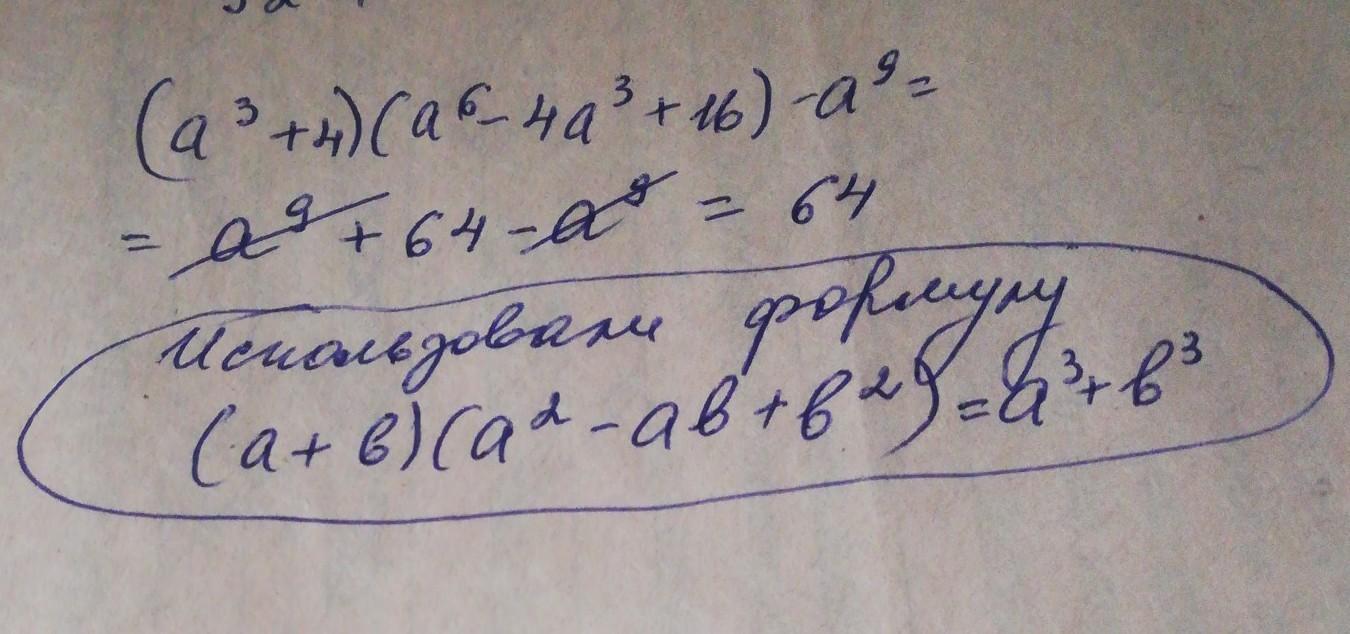 (a³+4)(a⁶-4a³+16)-a⁹=
= a⁹+64-a⁹ = 64
Использовали формулу
(a+b)(a²-ab+b²)=a³+b³